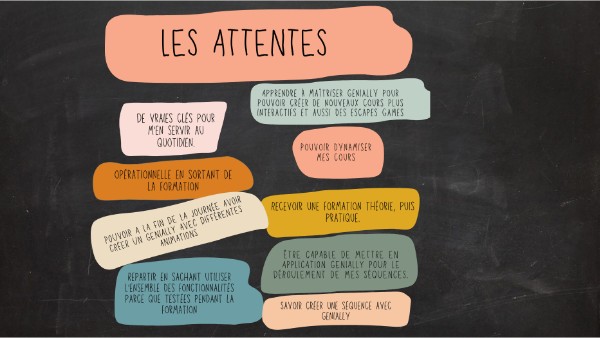 LES ATTENTES
APPRENDRE À MAÎTRISER GENIALLY POUR
POUVOIR CRÉER DE NOUVEAUX COURS PLUS
INTERACTIFS ET AUSSI DES ESCAPES GAMES
DE VRAIES CLÉS POUR
M'EN SERVIR AU
QUOTIDIEN.
POUVOIR DYNAMISER
MES COURS
OPÉRATIONNELLE EN SORTANT DE
LA FORMATION
RECEVOIR UNE FORMATION THÉORIE, PUIS
PRATIQUE.
POUVOIR A LA FIN DE LA JOURNÉE AVOIR
CRÉER UN GENIALLY AVEC DIFFÉRENTES
ANIMATIONS
ÊTRE CAPABLE DE METTRE EN
APPLICATION GENIALLY POUR LE
DÉROULEMENT DE MES SÉQUENCES.
REPARTIR EN SACHANT UTILISER
L'ENSEMBLE DES FONCTIONNALITÉS
PARCE QUE TESTÉES PENDANT LA
FORMATION
SAVOIR CRÉER UNE SÉQUENCE AVEC
GENIALLY